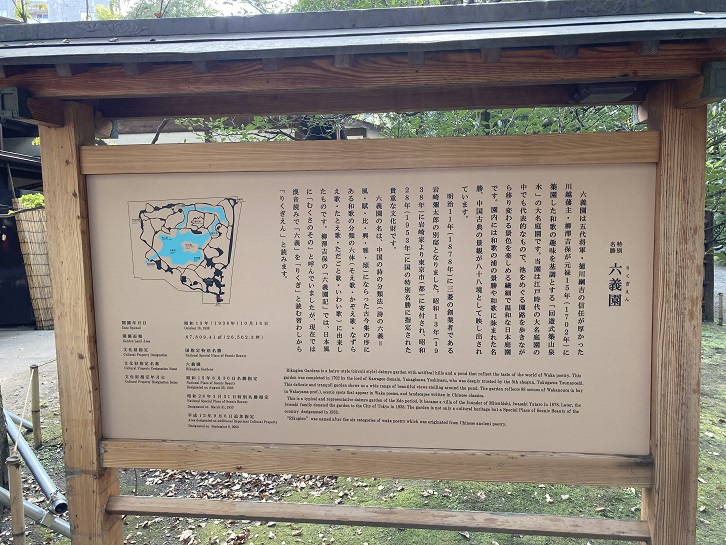 特別
名勝
六義園
りくぎえん
六義園は五代将軍・徳川綱吉の信任が厚かった
川越藩主・柳澤吉保が元禄15年(1702年)に
築園した和歌の趣味を基調とする「回遊式築山泉
水」の大名庭園です。当園は江戸時代の大名庭園の
中でも代表的なもので、池をめぐる園路を歩きなが
ら移り変わる景色を楽しめる繊細で温和な日本庭園
です。園内には和歌の浦の景勝や和歌に詠まれた名
勝、中国古典の景観が八十八境として映し出され
ています。
明治11年(1878年)に三菱の創業者である
岩崎彌太郎の別邸となりました。昭和13年(19
38年)に岩崎家より東京市(都)に寄付され、昭和
28年(1953年)に国の特別名勝に指定された
貴重な文化財です。
六義園の名は、中国の詩の分類法(詩の六義。
風・賦・比・興・雅・頌)にならった古今集の序に
ある和歌の分類の六体(そえ歌・かぞえ歌・なずら
え歌・たとえ歌・ただごと歌・いわい歌)に由来し
たものです。柳澤吉保の「六義園記」では、日本風
に「むくさのその」と呼んでいましたが、現在では
漢音読みで「六義」を「りくぎ」と読む習わしから
「りくぎえん」と読みます。
開園年月日 昭和13年(1938年)10月16日
Date Opened October 16, 1938
開園面積 87,809.41㎡
Garden Land Area
文化財指定 国指定特別名勝
Cultural Property Designation National Special Place of Scenic Beauty
文化財指定名称 六義園
Cultural Property Designation Name Rikugien Gardens
文化財指定年月日
Cultural Property Designation Date National Place of Scenic Beauty
昭和28年3月31日特別名勝指定
National Special Place of Scenic Beauty
Designated on March 31, 1953
Rikugien Gardens is a kaiyu-style (circuit style) daimyo garden with artifical hills and a pond that reflect the taste of the world of Waka poetry. This
garden was completed in 1702 by the lord of Kawagoe domain, Yanagisawa Yoshiyasu, who was deeply trusted by the 5th shogun, Tokugawa Tsunayoshi.
This delicate and tranquil garden shows us a wide range of beautiful views strolling around the pond. The garden reflects 88 scenes of Wakanoura (a bay
in Wakayama pref.), scenic spots that appear in Waka poems, and landscapes written in Chinese classics.
This is a typical and representative daimyo garden of the Edo period. It became a villa of the founder of Mitsubishi, Iwasaki Yataro in 1878. Later, the
Iwasaki family donated the garden to the City of Tokyo in 1938. The garden is not only a cultural heritage but a Special Place of Scenic Beauty of the
country designated in 1953.
"Rikugien" was named after the six categories of waka poetry which was originated from Chinese ancient poetry.